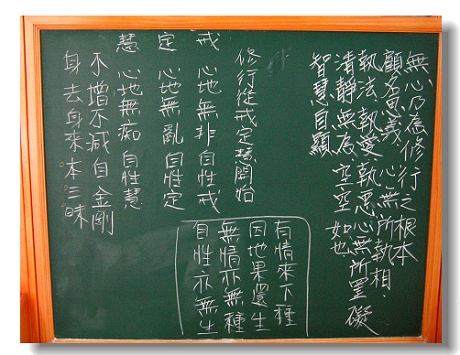 無心乃為修行之根本
顧名思義，心無所執相．
執法、執愛、執惡、心無所罣礙
清靜無為、空空如也
智慧自顯
修行從戒定慧開始
戒 心地無非自性戒
定 心地無亂自性定
慧 心地無痴自性慧
不增不減自金剛
身去身來本三昧
有情來下種
因地果還生
無情亦無種
自性亦無生